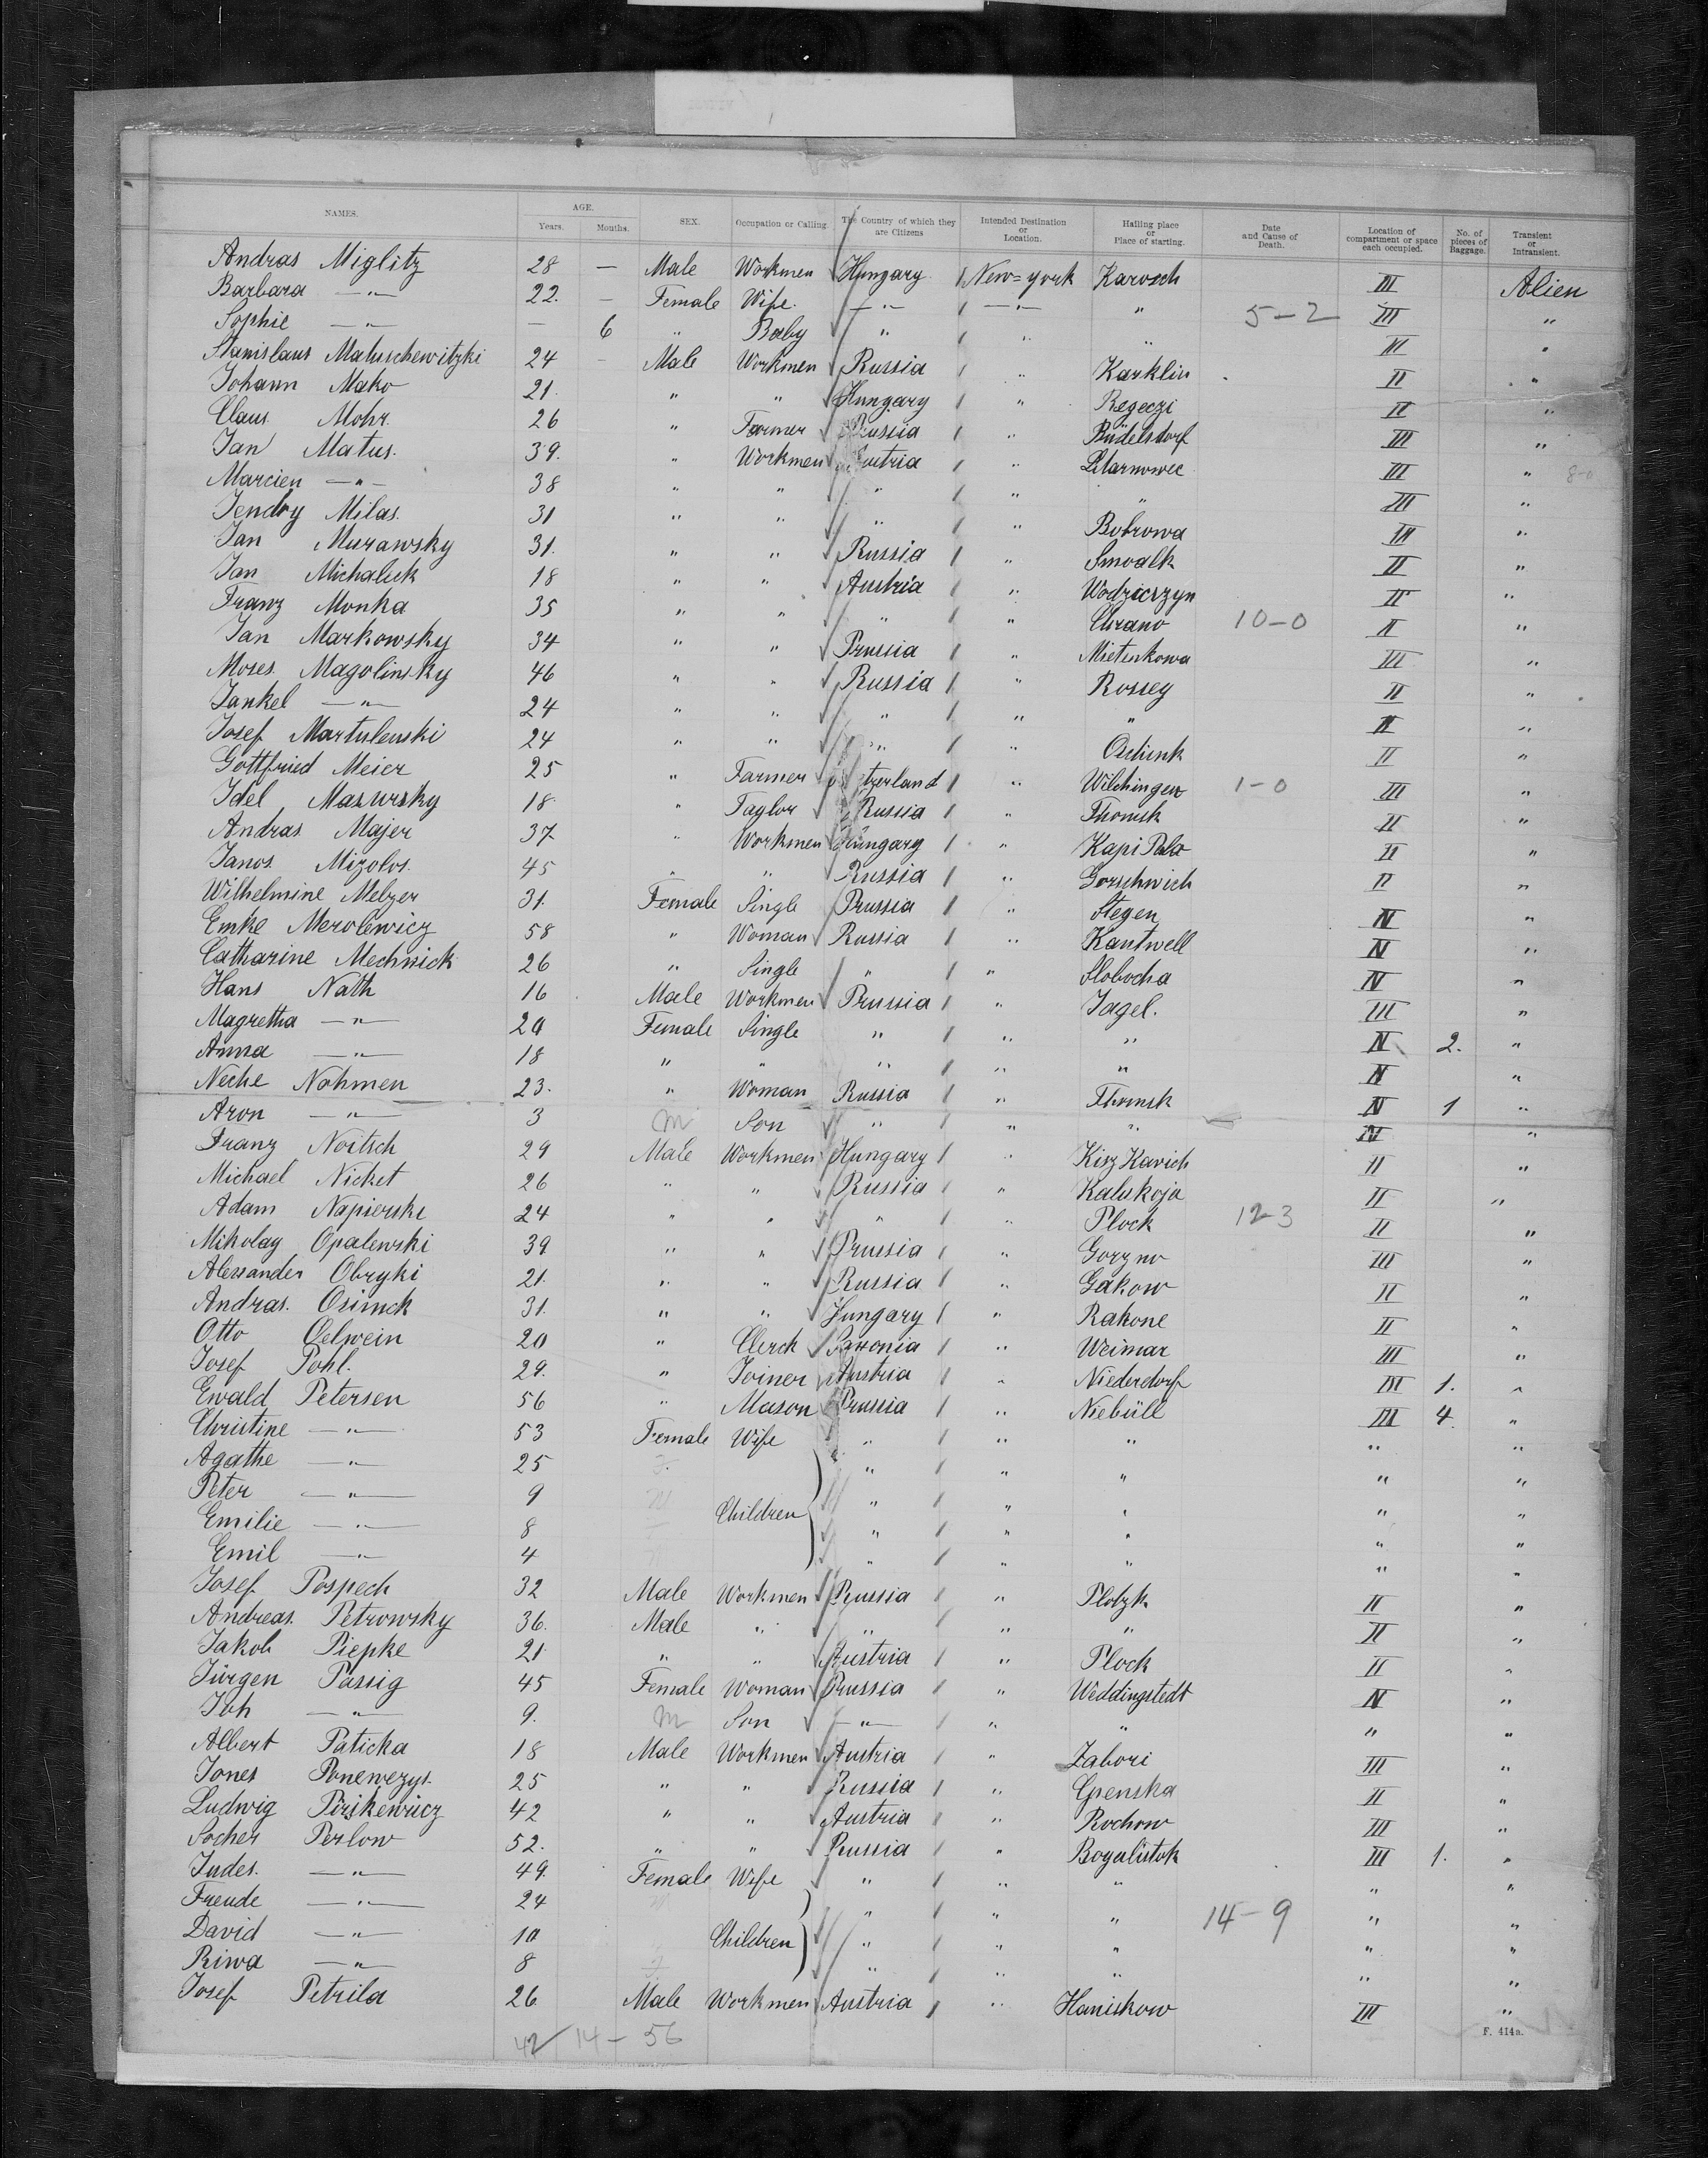 NAMES. AGE. Years. Months. SEX. Occupation or Calling The Country of which they are Citizens Intended Destination or Location. Hailing place or Place of starting. Date and Cause of Death. Location of compartment or space each occupied. No. of pieces of Baggage. Transient or Intransient.
Andras Miglitz 28 — Male Workmen Hungary New=york Karosch III Alien
Barbara —"— 22. — Female Wife. —"— —"— " 5-2 III "
Sophie —"— — 6 " Baby " " " III "
Stanislaus Matuschewitzki 24 — Male Workmen Russia " Karklin II "
Johann Mako 21. " " Hungary " Regeczi II "
Claus Mohr. 26 " Farmer Prussia " Büdelsdorf III "
Jan Matus. 39. " Workmen Austria " III " 8-0
Marcien —"— 38 " " " " " III "
Jendry Milas. 31 " " " " Bobrowa III "
Jan Murawsky 31. " " Russia " Smoalk II "
Jan Michaluk 18 " " Austria " Wodziczyn II "
Franz Monka 35 " " " " Chrano 10-0 II "
Jan Markowsky 34 " " Prussia " Mietenkowa III "
Moses Magolinsky 46 " " Russia " Rossey II "
Jankel —"— 24 " " " " " II "
Josef Martulewski 24 " " " " II "
Gottfried Meier 25 " Farmer " Wilchingen 1-0 III "
Idel Maswrsky 18 " Taylor Russia " Thomsk II "
Andras Majer 37 " Workmen Hungary " Kapi Pala II "
Janos Mizolos. 45 " " Russia " Gorschwich II "
Wilhelmine Melzer 31. Female Single Prussia " Stegen IV "
Emke Merolewicz 58 " Woman Russia " Kantwell IV "
Catharine Mechnick 26 " Single " " Slobocha IV "
Hans Nath 16 Male Workmen Prussia " Jagel. III "
Magretha —"— 20 Female Single " " " IV 2. "
Anna —"— 18 " " " " " IV "
Neche Nohmen 23. " Woman Russia " Thomsk IV 1 "
Aron —"— 3 m Son " " " IV "
Franz Noitsch 29 Male Workmen Hungary " Kisz Kavich II "
Michael Nicket 26 " " Russia " Kalukoja II "
Adam Napierski 24 " " " " Plock 12-3 II "
Mikolay Opalewski 39 " " Prussia " Gorzno III "
Alexander Obryki 21. " " Russia " Gakow II "
Andras. Osimck 31. " " Hungary " Rakone II "
Otto Oelwein 20 " Clerck Saxonia " Weimar III "
Josef Pohl. 29. " Joiner Austria " Niederdorf III 1. "
Ewald Petersen 56 " Mason Prussia " Niebüll III 4 "
Christine —"— 53 Female Wife " " " " "
Agathe —"— 25 F. " " " " "
Peter —"— 9 M Children " " " " "
Emilie —"— 8 " " " " "
Emil —"— 4 " " " " "
Josef Pospech 32 Male Workmen Russia " Plotzk II "
Andreas. Petrowsky 36. Male " " " " II "
Jakob Piepke 21 " " Austria " Plock II "
Jürgen Passig 45 Female Woman Prussia " Weddingstedt IV "
Joh —"— 9. m Son —"— " " " "
Albert Paticka 18 Male Workmen Austria " Zabori III "
Jones Ponewezys. 25 " " Russia " Grenska II "
Ludwig Pirskewicz 42 " " Austria " Rochow III "
Socher Perlow 52. " " Russia " Bogalistok III 1. "
Judes. —"— 49. Female Wife " " " " "
Freude —"— 24 " " " 14-9 " "
David —"— 10 Children " " " " "
Riwa —"— 8 " " " " "
Josef Petrila 26 Male Workmen Austria " Haniskow III "
42 14 - 56
F. 414a.